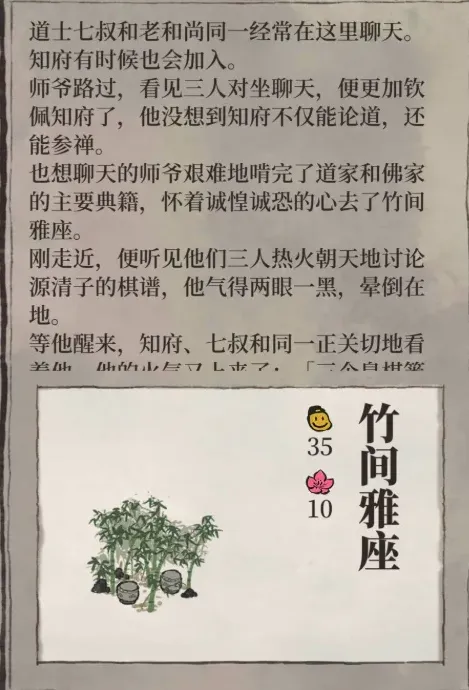 道士七叔和老和尚同一经常在这里聊天。
知府有时候也会加入。
师爷路过，看见三人对坐聊天，便更加钦
佩知府了，他没想到知府不仅能论道，还
能参禅。
也想聊天的师爷艰难地啃完了道家和佛家
的主要典籍，怀着诚惶诚恐的心去了竹间
雅座。
刚走近，便听见他们三人热火朝天地讨论
源清子的棋谱，他气得两眼一黑，晕倒在
地。
等他醒来，知府、七叔和同一正关切地看
着他，他的火气又上来了：「三个臭棋篓
竹间雅座
35
10